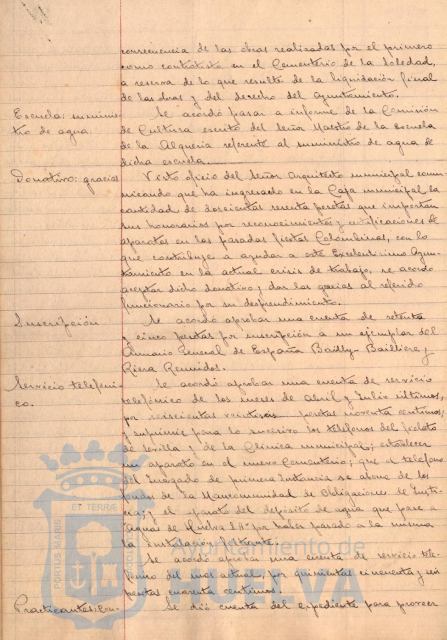 consecuencia de las obras realizadas por el primero
como contratista en el Cementerio de la Soledad,
a reserva de lo que resulte de la liquidación final
de las obras y del derecho del Ayuntamiento.
Escuela: suminis-
tro de agua
Se acordó pasar a informe de la Comisión
de Cultura escrito del Señor Maestro de la Escuela
de la Alquería referente al suministro de agua de
dicha escuela
Donativo: gracias
Visto oficio del Señor Arquitecto municipal comu-
nicando que ha ingresado en la Caja municipal, la
cantidad de doscientas pesetas que importan
sus honorarios por reconocimientos y certificaciones de
aparatos en las pasadas fiestas Colombinas, con lo
que contribuye a ayudar a este Excelentísimo Ayun-
tamiento en la actual crisis de trabajo, se acordó
aceptar dicho donativo y dar las gracias al referido
funcionario por su desprendimiento.
Suscripción
Se acordó aprobar una cuenta de
y cinco pesetas por suscripción a un ejemplar del
Anuario General de España Bailly-Bailliere y
Riera Reunidos.
Servicio telefóni-
co.
Se acordó aprobar una cuenta de servicio
telefónico de los meses de Abril y Julio últimos,
por seiscientas pesetas noventa céntimos;
suprimir para lo sucesivo los teléfonos del
de Sevilla y de la Clínica municipal; establecer
un aparato en el nuevo Cementerio; que el teléfono
del Juzgado de primera Instancia se abone de los
fondos de la Mancomunidad de Obligaciones de Justi-
cia; y el gasto del depósito de agua que pase a
Aguas de Huelva por haber pasado a la misma
la instalación
Se acordó aprobar una cuenta de servicio tele-
fónico del mes actual, por quinientas cincuenta y seis
pesetas cuarenta céntimos.
Practicantes: Con-
Se dió cuenta del expediente para proveer
PORTUS MARIS
ET TERRAE
Ayuntamiento de
HUELVA